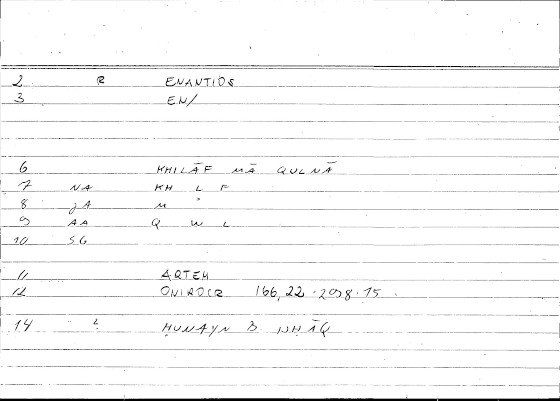 2 R ENANTIOS
3 EN/
6 KHILĀF MĀ QULNĀ
7 NA KH L F
8 JA M
9 AA Q W L
10 SG
11 ARTEM
12 ONIROCR 166,22 · 2098 · 15
14 2 ḤUNAYN B ISḤĀQ